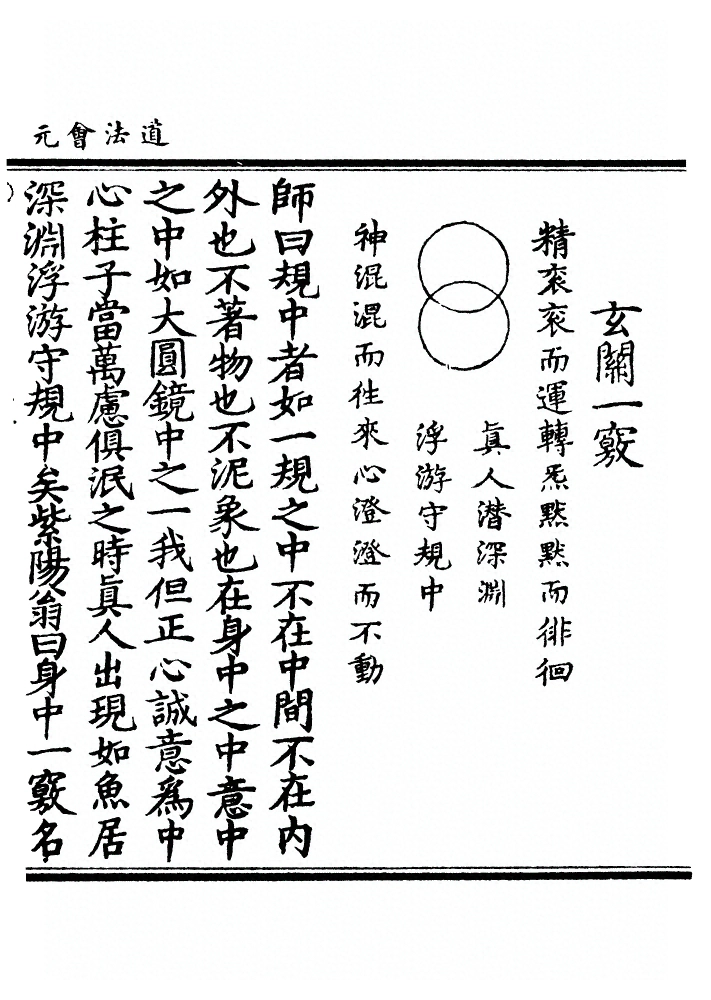 道法會元
玄關一竅
精衮衮而運轉炁默默而徘徊
眞人潛深淵
浮游守規中
神混混而徃來心澄澄而不動
師曰規中者如一規之中不在中間不在内
外也不著物也不泥象也在身中之中意中
之中如大圓鏡中之一我但正心誠意爲中
心柱子當萬慮俱泯之時眞人出現如魚居
深淵浮游守規中矣紫陽翁曰身中一竅名